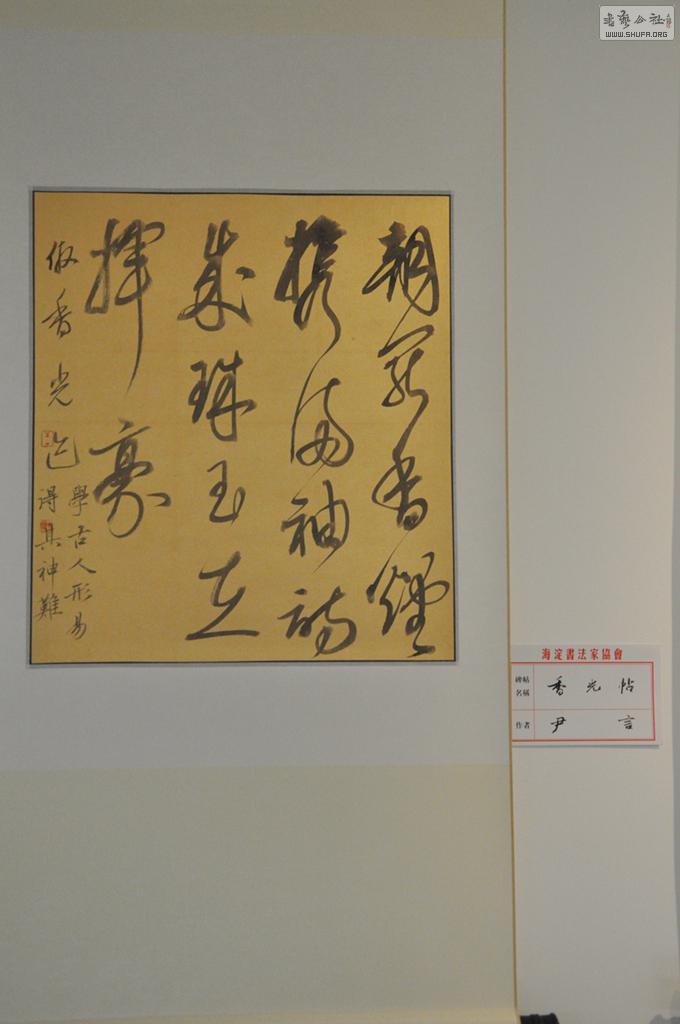 朝罷香煙
攜滿袖詩
成珠玉在
揮毫
仿香光
學古人形易
得其神難
海淀書法家協會
碑帖名稱 香光帖
作者 尹言
書藝公社
WWW.SHUFA.ORG